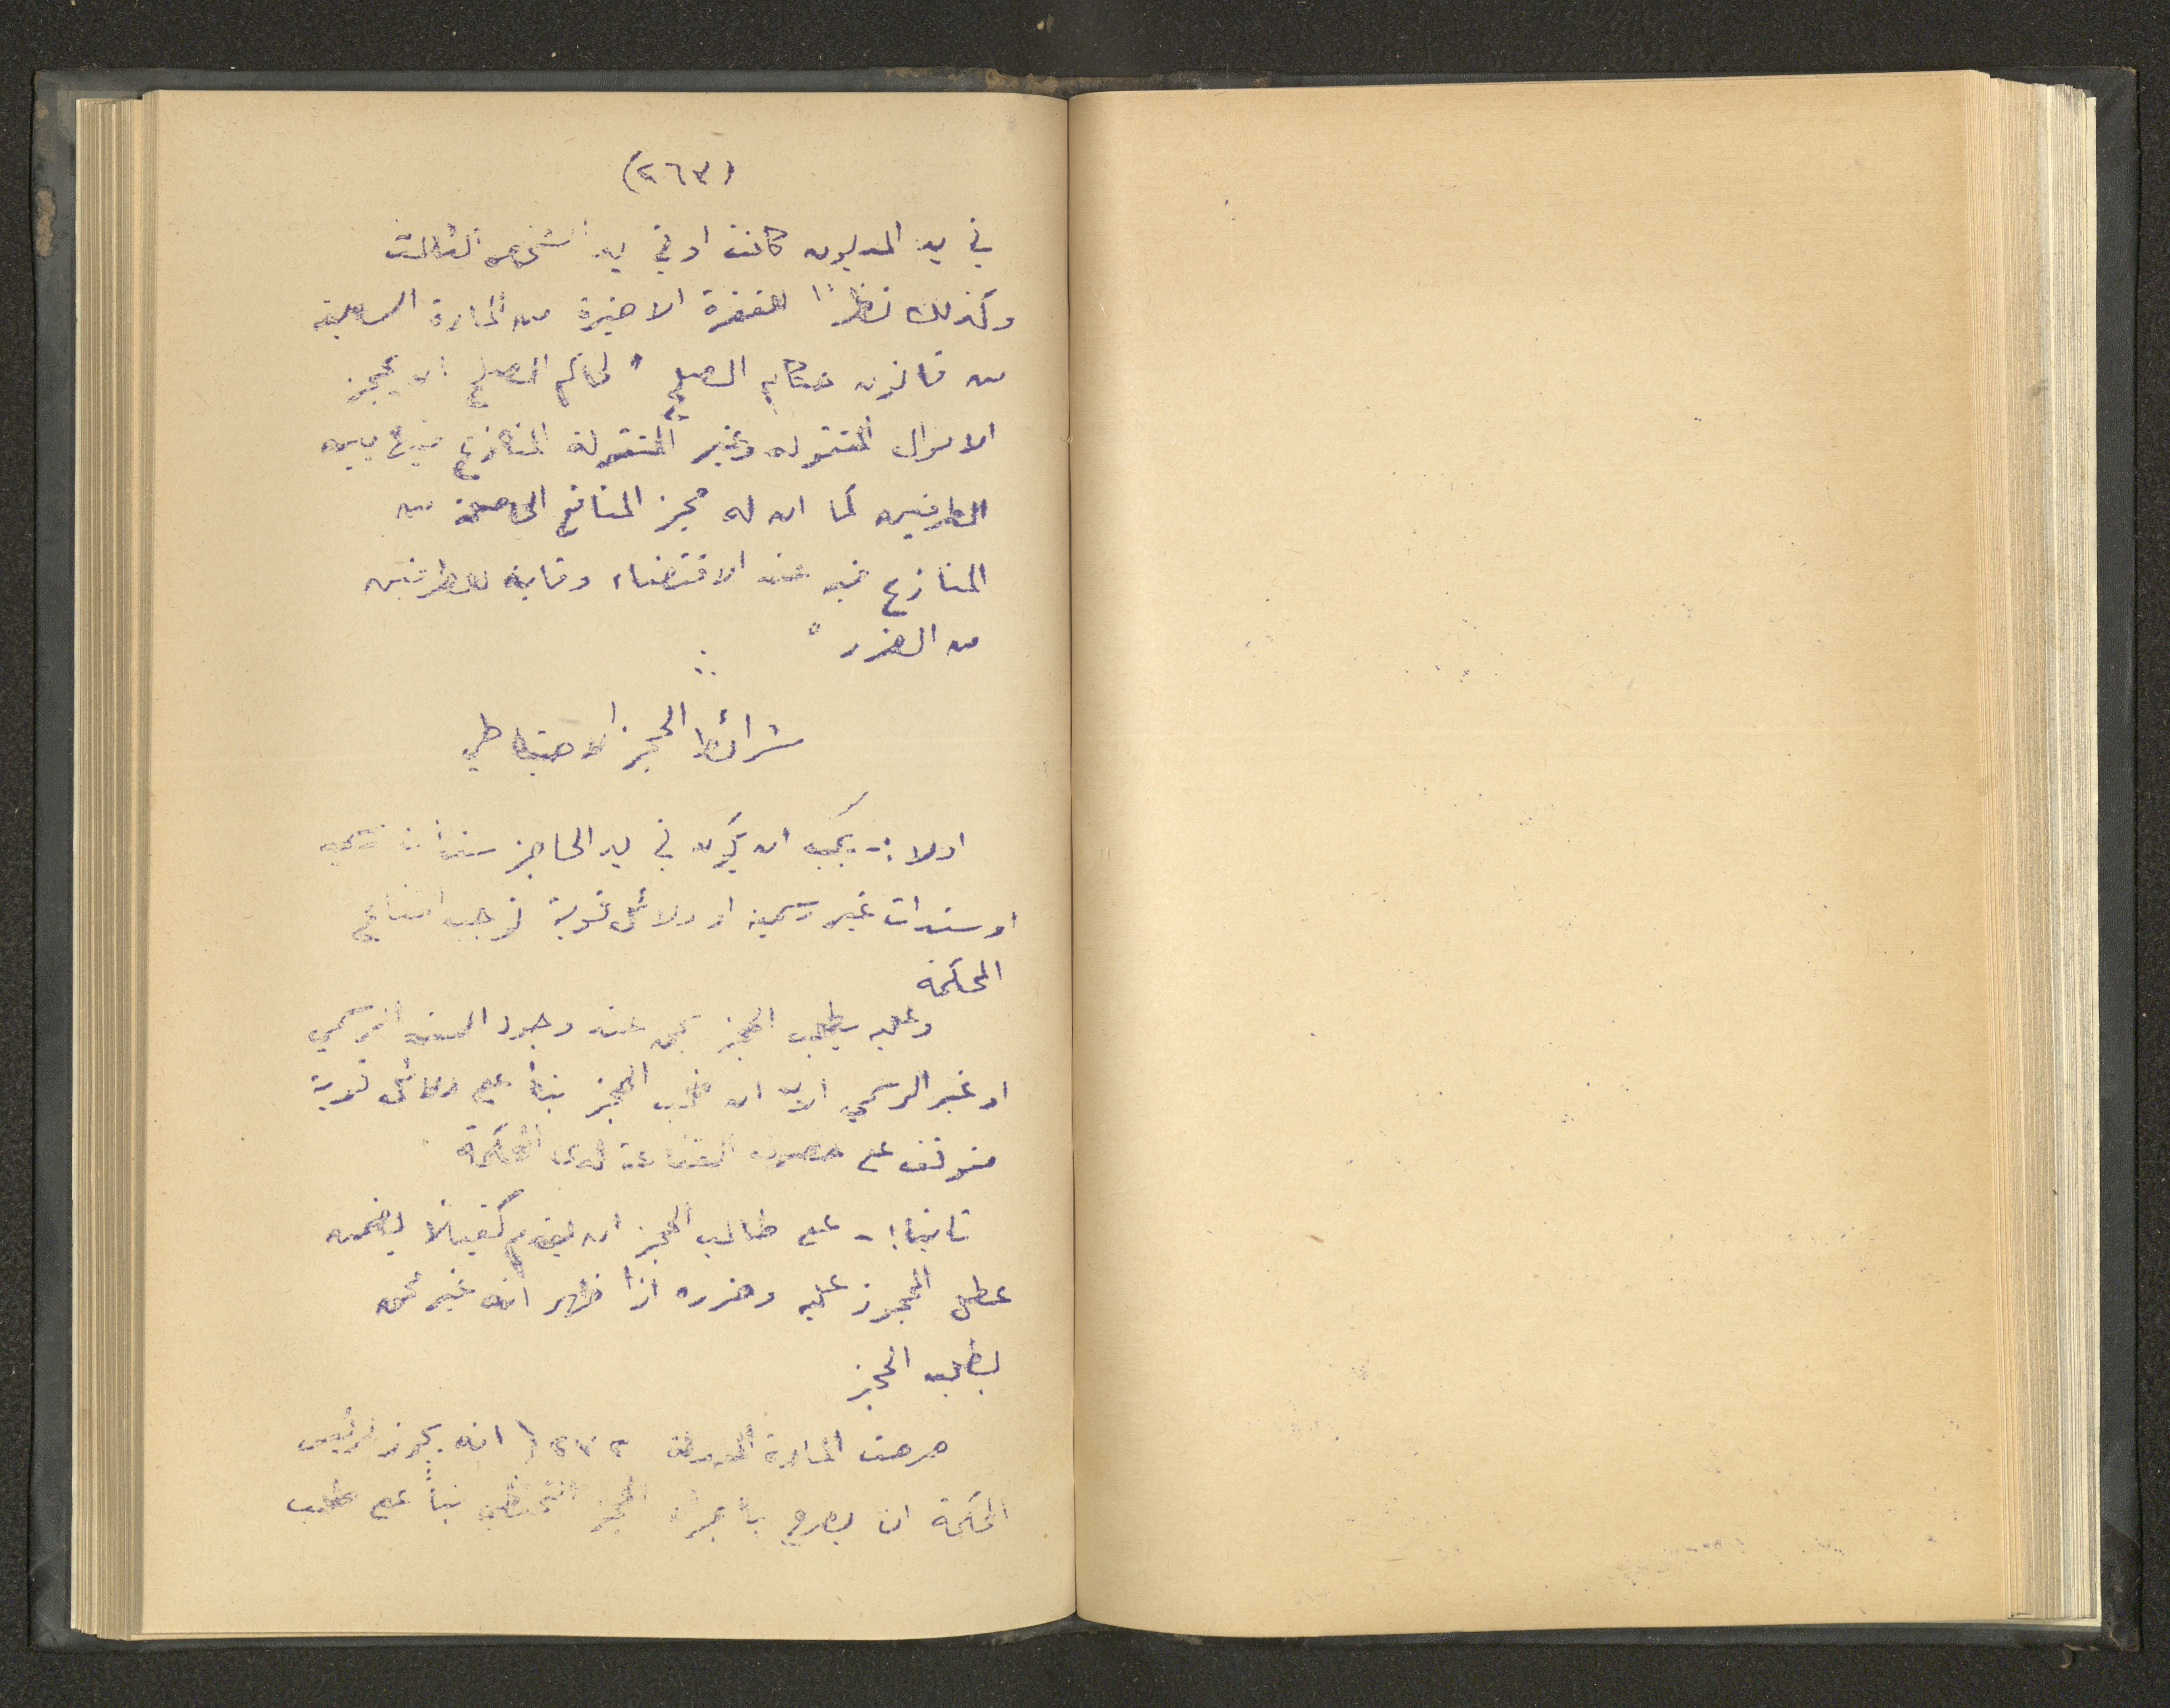 (٢٦٣)
في يد المديون كانت او في يد الشخص الثالث
وكذلك نظراً للفقرة الاخيرة من المادة السابعة
من قانون حكام الصلح " لحاكم الصلح ان يحجز
الاموال المنقوله وغير المنقولة المنازع فيها بين
الطرفين كما ان له حجز المنافع الحاصلة من
المنازع فيه عند الاقتضاء وقاية للطرفين
من الضرر "
شرائط الحجز الاحتياطي
اولا :- يجب ان يكون في يد الحاجز سندات رسميه
او سندات غير رسميه او دلائل قوية توجب اقناع
المحكمة
وعليه يطلب الحجز بحق عند وجود السند الرسمي
او غير الرسمي الا ان طلب الحجز بناء على دلائل قوية
متوقف على حصول القناعة لدى المحكمة
ثانيا :- على طالب الحجز ان يقدم كفيلا يضمن
عطل المحجوز عليه وضرره اذا ظهر انه غير محق
بطلبه الحجز
صرحت المادة المعدلة انه يجوز لرئيس
المحكمة ان يصرح باجراء الحجز التحفظي بناءً على طلب